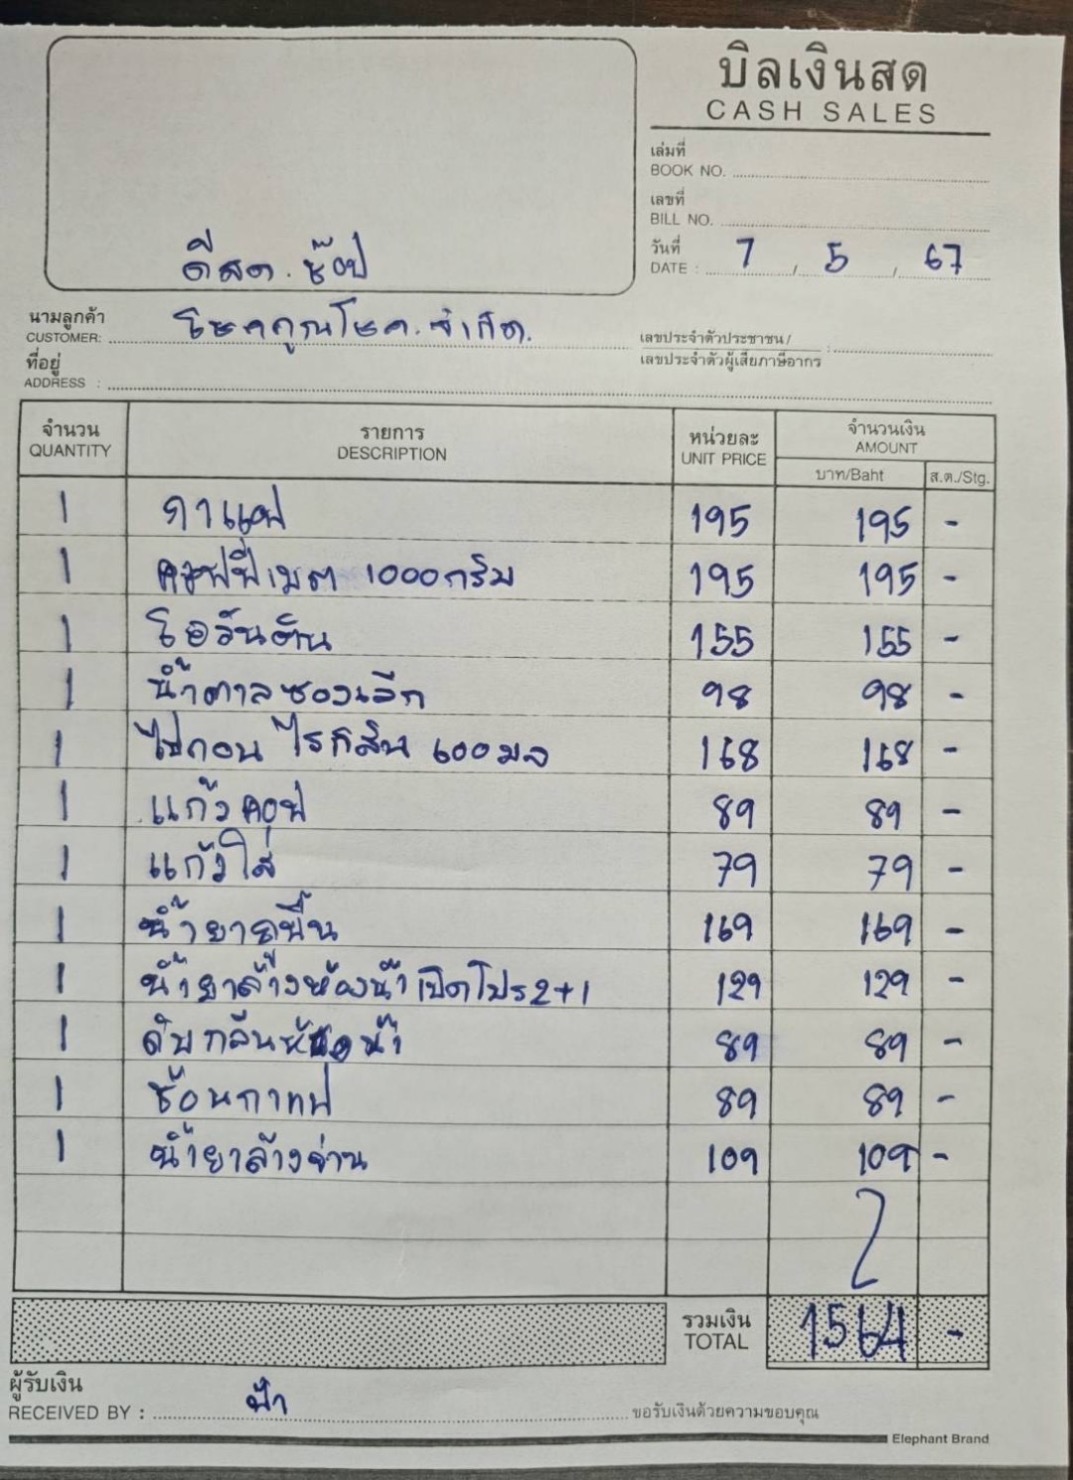 บิลเงินสด
CASH SALES
เล่มที่
BOOK NO.
เลขที่
BILL NO.
วันที่
DATE : 7 / 5 / 67
ดีสด. ช๊อป
นามลูกค้า
CUSTOMER: โชคคูณโชค. จำกัด.
เลขประจำตัวประชาชน /
เลขประจำตัวผู้เสียภาษีอากร :
ที่อยู่
ADDRESS :
จำนวน รายการ หน่วยละ จำนวนเงิน
QUANTITY DESCRIPTION UNIT PRICE AMOUNT
บาท/Baht ส.ต./Stg.
1 กาแฟ 195 195 -
1 คอฟฟี่เมต 1000กรัม 195 195 -
1 โอวันติน 155 155 -
1 น้ำตาลซองเล็ก 98 98 -
1 ไปกอน ไรก์ลิน 600มล 168 168 -
1 แก้ว 89 89 -
1 แก้วใส 79 79 -
1 น้ำยาถูพื้น 169 169 -
1 น้ำยาล้างห้องน้ำ เป็ดโปร2+1 129 129 -
1 ดับกลิ่นห้องน้ำ 89 89 -
1 ช้อนกาแฟ 89 89 -
1 น้ำยาล้างจาน 109 109 -
รวมเงิน
TOTAL 1564 -
ผู้รับเงิน
RECEIVED BY : ฟ้า
ขอรับเงินด้วยความขอบคุณ
Elephant Brand